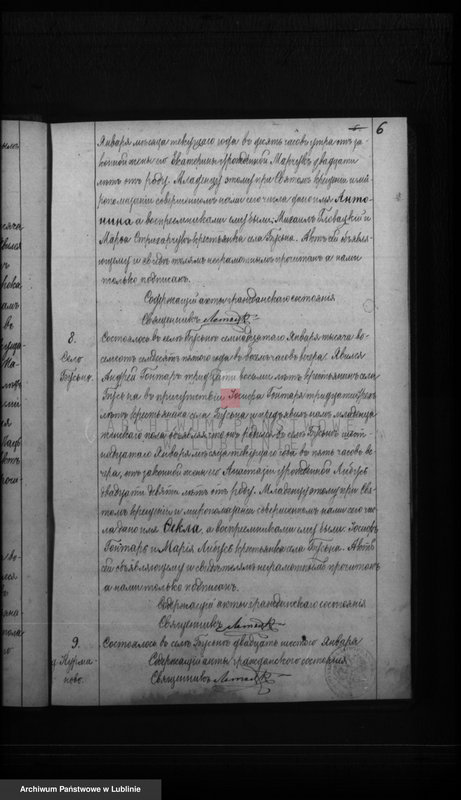 6
Января месяца текущаго года въ десять часовъ утра отъ за-
конной жены его Екатерины урожденной Марчукъ двадцати
лѣтъ отъ роду. Младенцу этому при Святомъ крещеніи и мѵ-
ропомазаніи совершенномъ нами сего числа дано имя Анто-
нина а воспреемниками ему были: Михаилъ и
Марья крестьяне села Бусьна. Актъ сей объявля-
ющему и свидѣтелямъ неграмотнымъ прочитанъ а нами
только подписанъ.
Содержащій акты гражданскаго состоянія
Священникъ
8.
Село
Бусьно.
Состоялось въ селѣ Бусьнѣ семнадцатаго Января тысяча во-
семсотъ пятаго года въ восемь часовъ вечера. Явился
Андрей Гонтарь тридцати восьми лѣтъ крестьянинъ села
Бусьна въ присутствіи Іосифа Гонтаря тридцати трехъ
лѣтъ крестьянъ села Бусьна и предъявилъ намъ младенца
женскаго пола объявляя что онъ родился въ селѣ Бусьнѣ шест-
надцатаго Января мѣсяца текущаго года въ пять часовъ ве-
чера, отъ законной жены его Анастазіи урожденной
двадцати девяти лѣтъ отъ роду. Младенцу этому при Свя-
томъ крещеніи и миропомазаніи совершенномъ нами сего чи-
сла дано имя Ѳекла, а воспреемниками ему были Іосифъ
Гонтарь и Марія крестьяне села Бусьна. Актъ
сей объявляющему и свидѣтелямъ неграмотнымъ прочитанъ
а нами только подписанъ.
Содержащій акты гражданскаго состоянія
Священникъ
9.
Состоялось въ селѣ Бусьнѣ двадцать шестаго Января
Содержащій акты гражданского состоянія
Священникъ
ARCHIWUM PAŃSTWOWE
Archiwum Państwowe w Lublinie